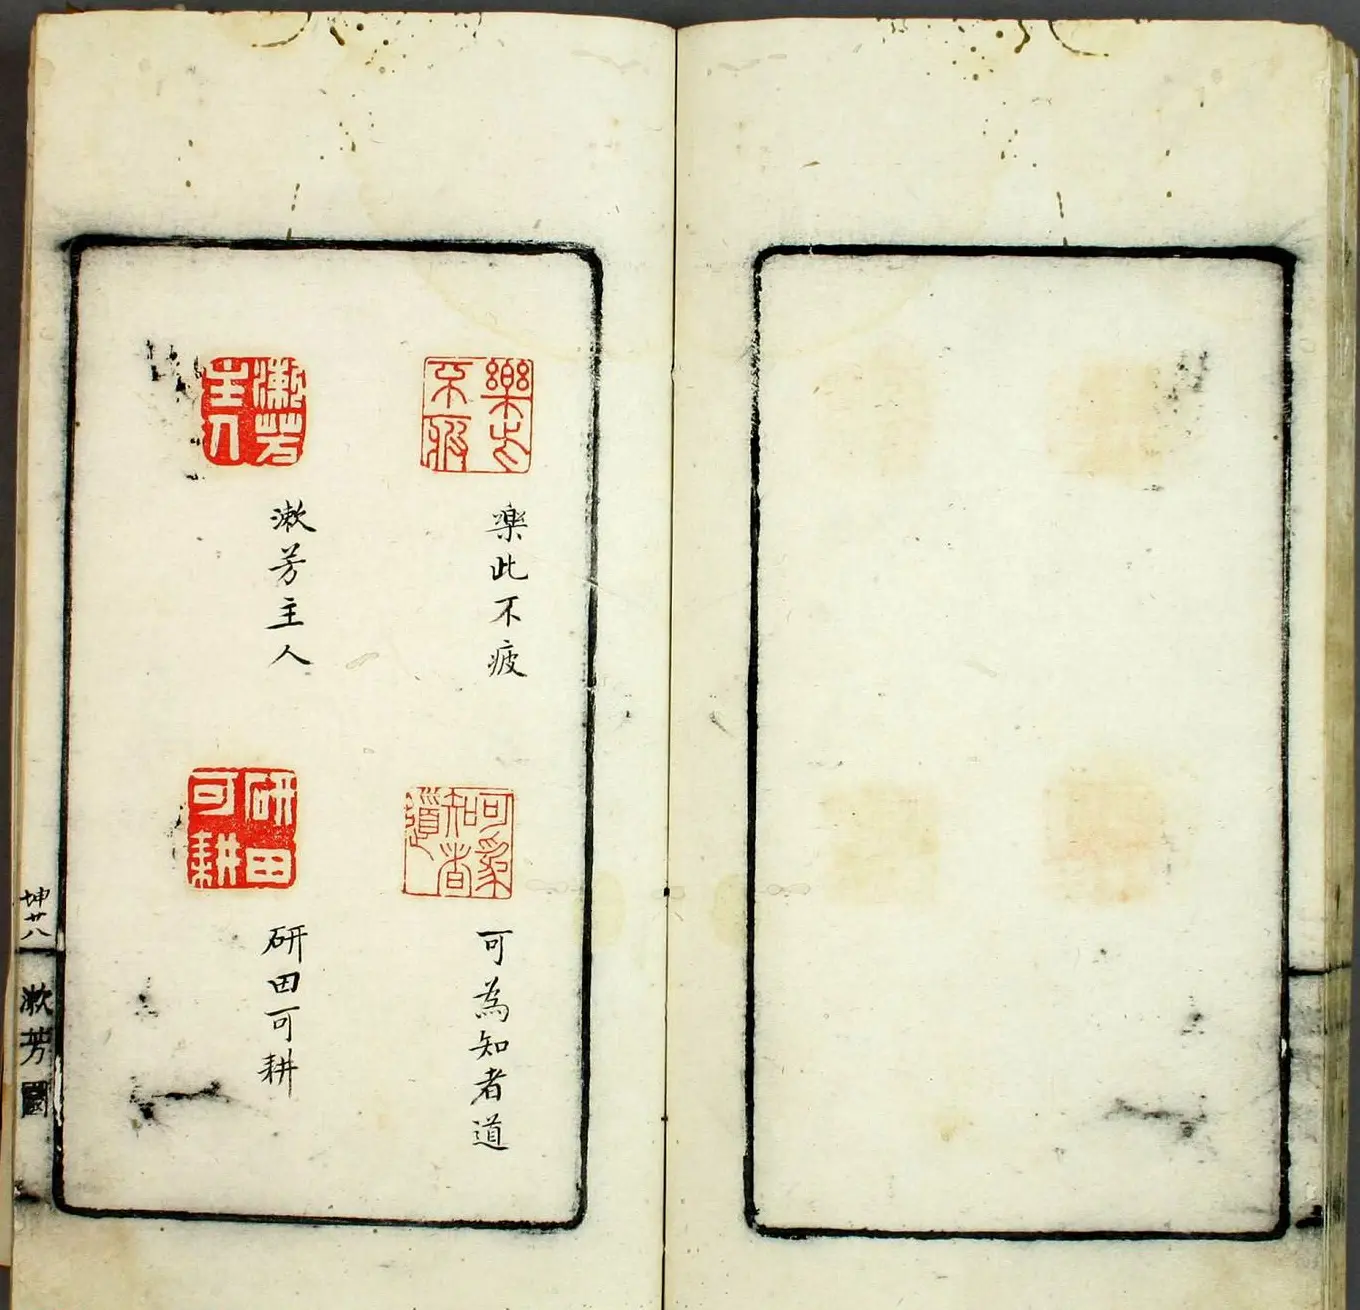 樂此不疲
樂此不疲
可為知者道
可為知者道
漱芳主人
漱芳主人
研田可耕
研田可耕
坤廿八
漱芳園